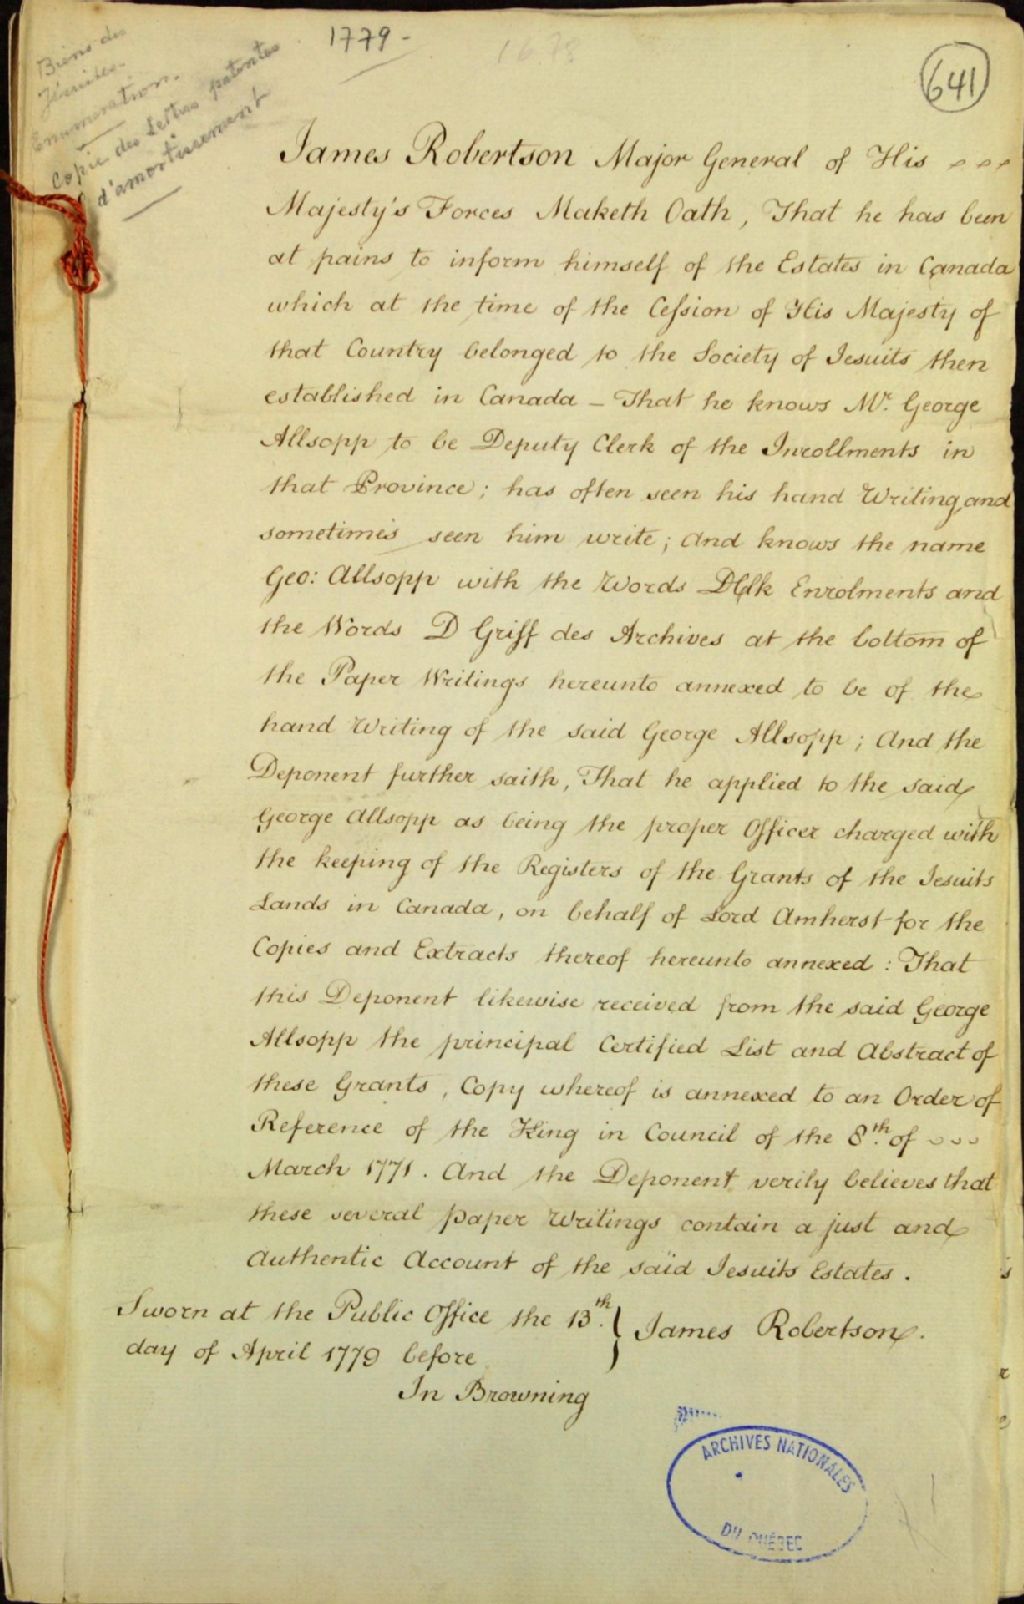 Biens des
Jésuites.
Enumeration.
Copie des Lettres patentes
d'amortissement
1779-
1678
641
James Robertson Major General of His
Majesty's Forces Maketh Oath, That he has been
at pains to inform himself of the Estates in Canada
which at the time of the Cession of His Majesty of
that Country belonged to the Society of Jesuits then
established in Canada – That he knows Mr. George
Allsopp to be Deputy Clerk of the Inrollments in
that Province; has often seen his hand Writing, and
sometimes seen him write; And knows the name
Geo: Allsopp with the Words DClk Enrolments and
the Words D Griff des Archives at the bottom of
the Paper Writings hereunto annexed to be of the
hand Writing of the said George Allsopp; And the
Deponent further saith, That he applied to the said
George Allsopp as being the proper Officer charged with
the keeping of the Registers of the Grants of the Jesuits
Lands in Canada, on behalf of Lord Amherst for the
Copies and Extracts thereof hereunto annexed: That
this Deponent likewise received from the said George
Allsopp the principal Certified List and Abstract of
these Grants, Copy whereof is annexed to an Order of
Reference of the King in Council of the 8th. of
March 1771. And the Deponent verily believes that
these several paper Writings contain a just and
Authentic Account of the said Jesuits Estates.
Sworn at the Public Office the 13th.
day of April 1779 before
James Robertson.
Jn Browning
ARCHIVES NATIONALES
DU QUÉBEC